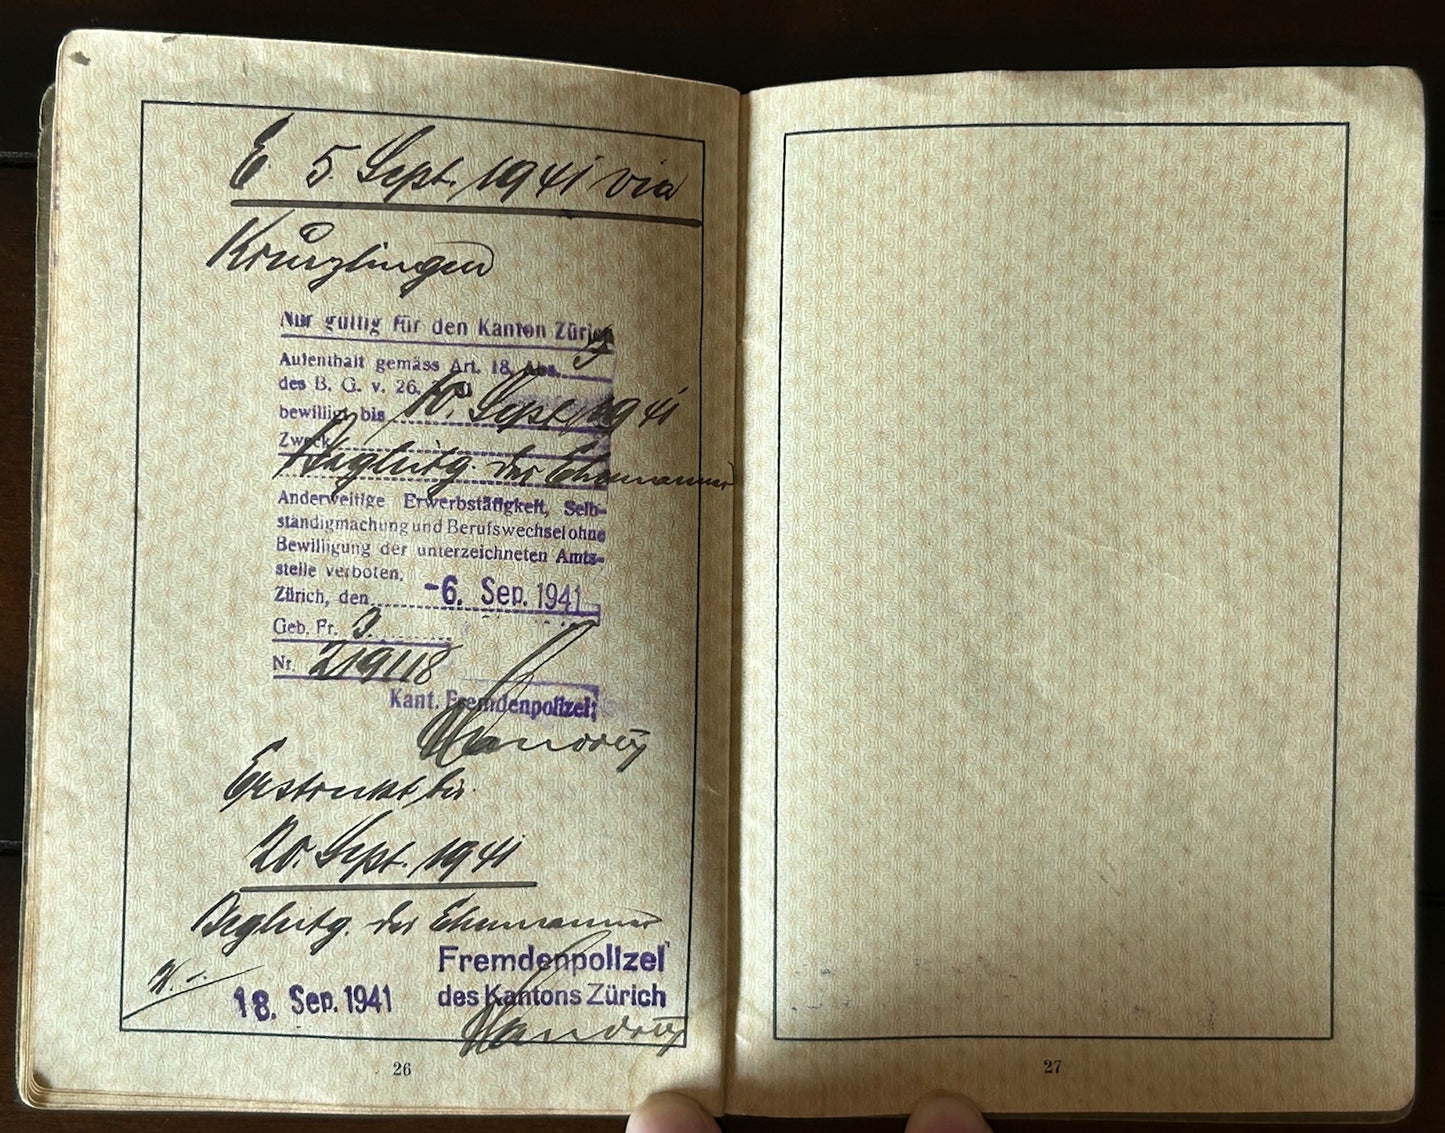 E 5. Sept. 1941 via
Kreuzlingen
Nur gültig für den Kanton Zürich
Aufenthalt gemäss Art. 18, Abs.
des B. G. v. 26.
bewilligt bis 10. Sept. 1941
Zweck
Begleitg. des Ehemannes
Anderweitige Erwerbstätigkeit, Selb-
ständigmachung und Berufswechsel ohne
Bewilligung der unterzeichneten Amts-
stelle verboten.
Zürich, den -6. Sep. 1941
Geb. Fr. 3.
Nr. 219118
Kant. Fremdenpolizei:
Erstreckt bis
20. Sept. 1941
Begleitg. des Ehemannes
Fremdenpolizei
18. Sep. 1941 des Kantons Zürich
26
27